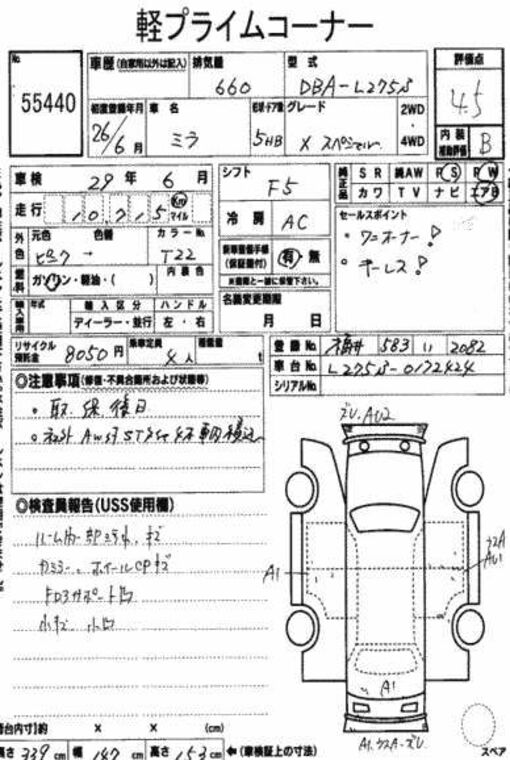 軽プライムコーナー
No. 55440
車歴 (自家用以外は記入) 排気量 660 型式 DBA-L275S 評価点 4.5
初度登録年月 26/6月 車名 ミラ 形状・ドア数 5HB グレード X スペシャル 2WD・4WD 内装補助評価 B
車検 29年 6月 シフト F5 純正品 SR 純AW PS PW
カワ TV ナビ エアB
走行 10,715 Km マイル 冷房 AC セールスポイント
・ワンオーナー!
・キーレス!
外色 元色 ピンク 色替 カラーNo. T22
新車整備手帳(保証書付) 有・無
※車両と一緒に保管下さい。
燃料 ガソリン・軽油・( ) 内装色
名義変更期限 月 日
輸入車用 年式 輸入区分 ディーラー・並行 ハンドル 左・右
リサイクル預託金 8050円 乗車定員 4人 積載量 t
登録No. 福井 583 い 2082
車台No. L275S-0172424
シリアルNo.
◎注意事項(修復・不具合箇所および状態等)
・取、保、後日
◎検査員報告(USS使用欄)
ルーム内一部汚れ、キズ
カミラー、ホイールCPキズ
小キズ 小凹
ズレ、AU2
A1
A1
A1.
スペア
荷台内寸)約 × × (cm)
長さ 339cm 幅 147cm 高さ 153cm ←(車検証上の寸法)